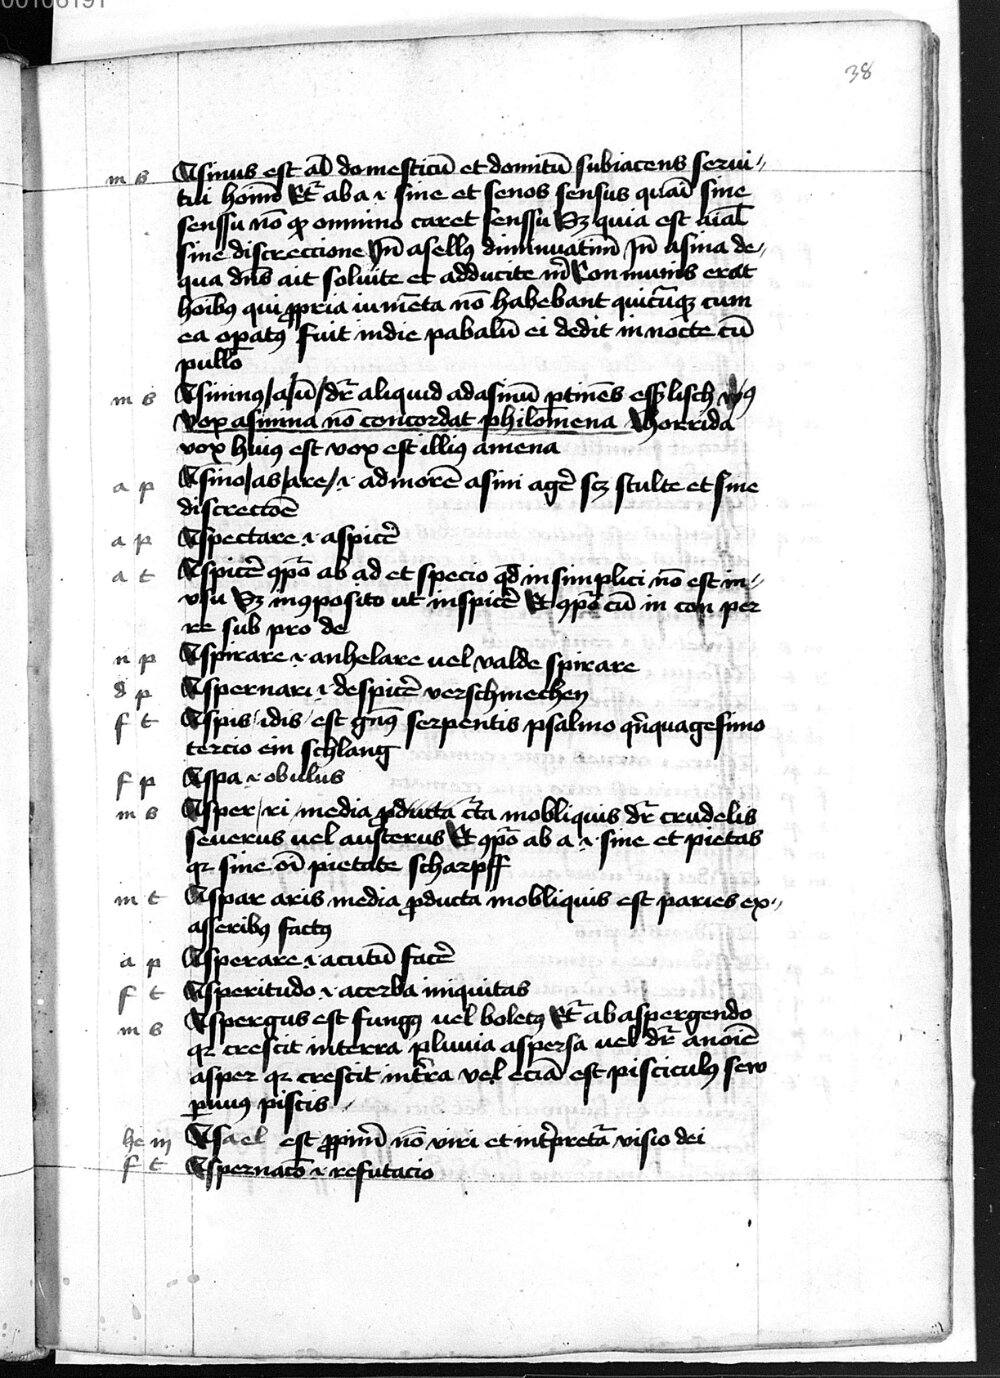 00106191
38
m s Asinus est aĺ domesticū et domitū subiacens serui-
tuti homī Et dr̄ ab a .i. sine et senos sensus quasi sine
senssu nō qꝫ omnino caret senssu Sꝫ quia est aial
sine discreccione Jn̄ asellꝰ diminuatiuū Jn̄ asina de-
qua dn̄s ait soluite et adducite m̄ Conmunis erat
hoībꝰ qui ꝓpria iumēta nō habebant quicūqꝫ cum
ea opatꝰ fuit in die pabulū ei dedit in nocte cū
pullo
m s Asininꝰ/a/ū/ dr̄ aliquid ad asinū ꝑtinēs esslisch
vox asinina nō concordat philomena Horrida
vox huiꝰ est vox est illiꝰ amena
a p Asino/as/are/ .i. ad morē asini agē scꝫ stulte et sine
discrectōe
a p Aspectare .i. aspicē
a t Aspicē ꝯpō ab ad et specio qd̄ in simplici nō est in-
vsu Sꝫ in ꝯposito ut inspicē Et ꝯpō cū in con per
re sub pro de
n p Aspirare .i. anhelare uel valde spirare
d p Aspernari .i. despicē verschmechen
f t Aspis/idis/ est gnꝰ serpentis psalmo qn̄quagesimo
tercio ein schlang
f p Aspa .i. obulus
m s Asper/ri/ media ꝓducta in obliquis dr̄ crudelis
seuerus uel austerus Et ꝯpō ab a .i. sine et pietas
qr sine oī pietate scharpff
m t Aspar aris media ꝓducta in obliquis est paries ex-
asseribꝰ factꝰ
a p Asperare .i. acutū facē
f t Asperitudo .i. acerba iniquitas
m s Aspergus est fungꝰ uel boletꝰ Et dr̄ ab aspergendo
qr crescit in terra pluuia aspersa uel dr̄ a noīe
asper qr crescit in t̄ra vel eciā est pisciculꝰ seu
ꝑuus piscis
he m Asael est ꝓpiū nō viri et int̄pretat̄ visio dei
f t Aspernacō .i. refutacio